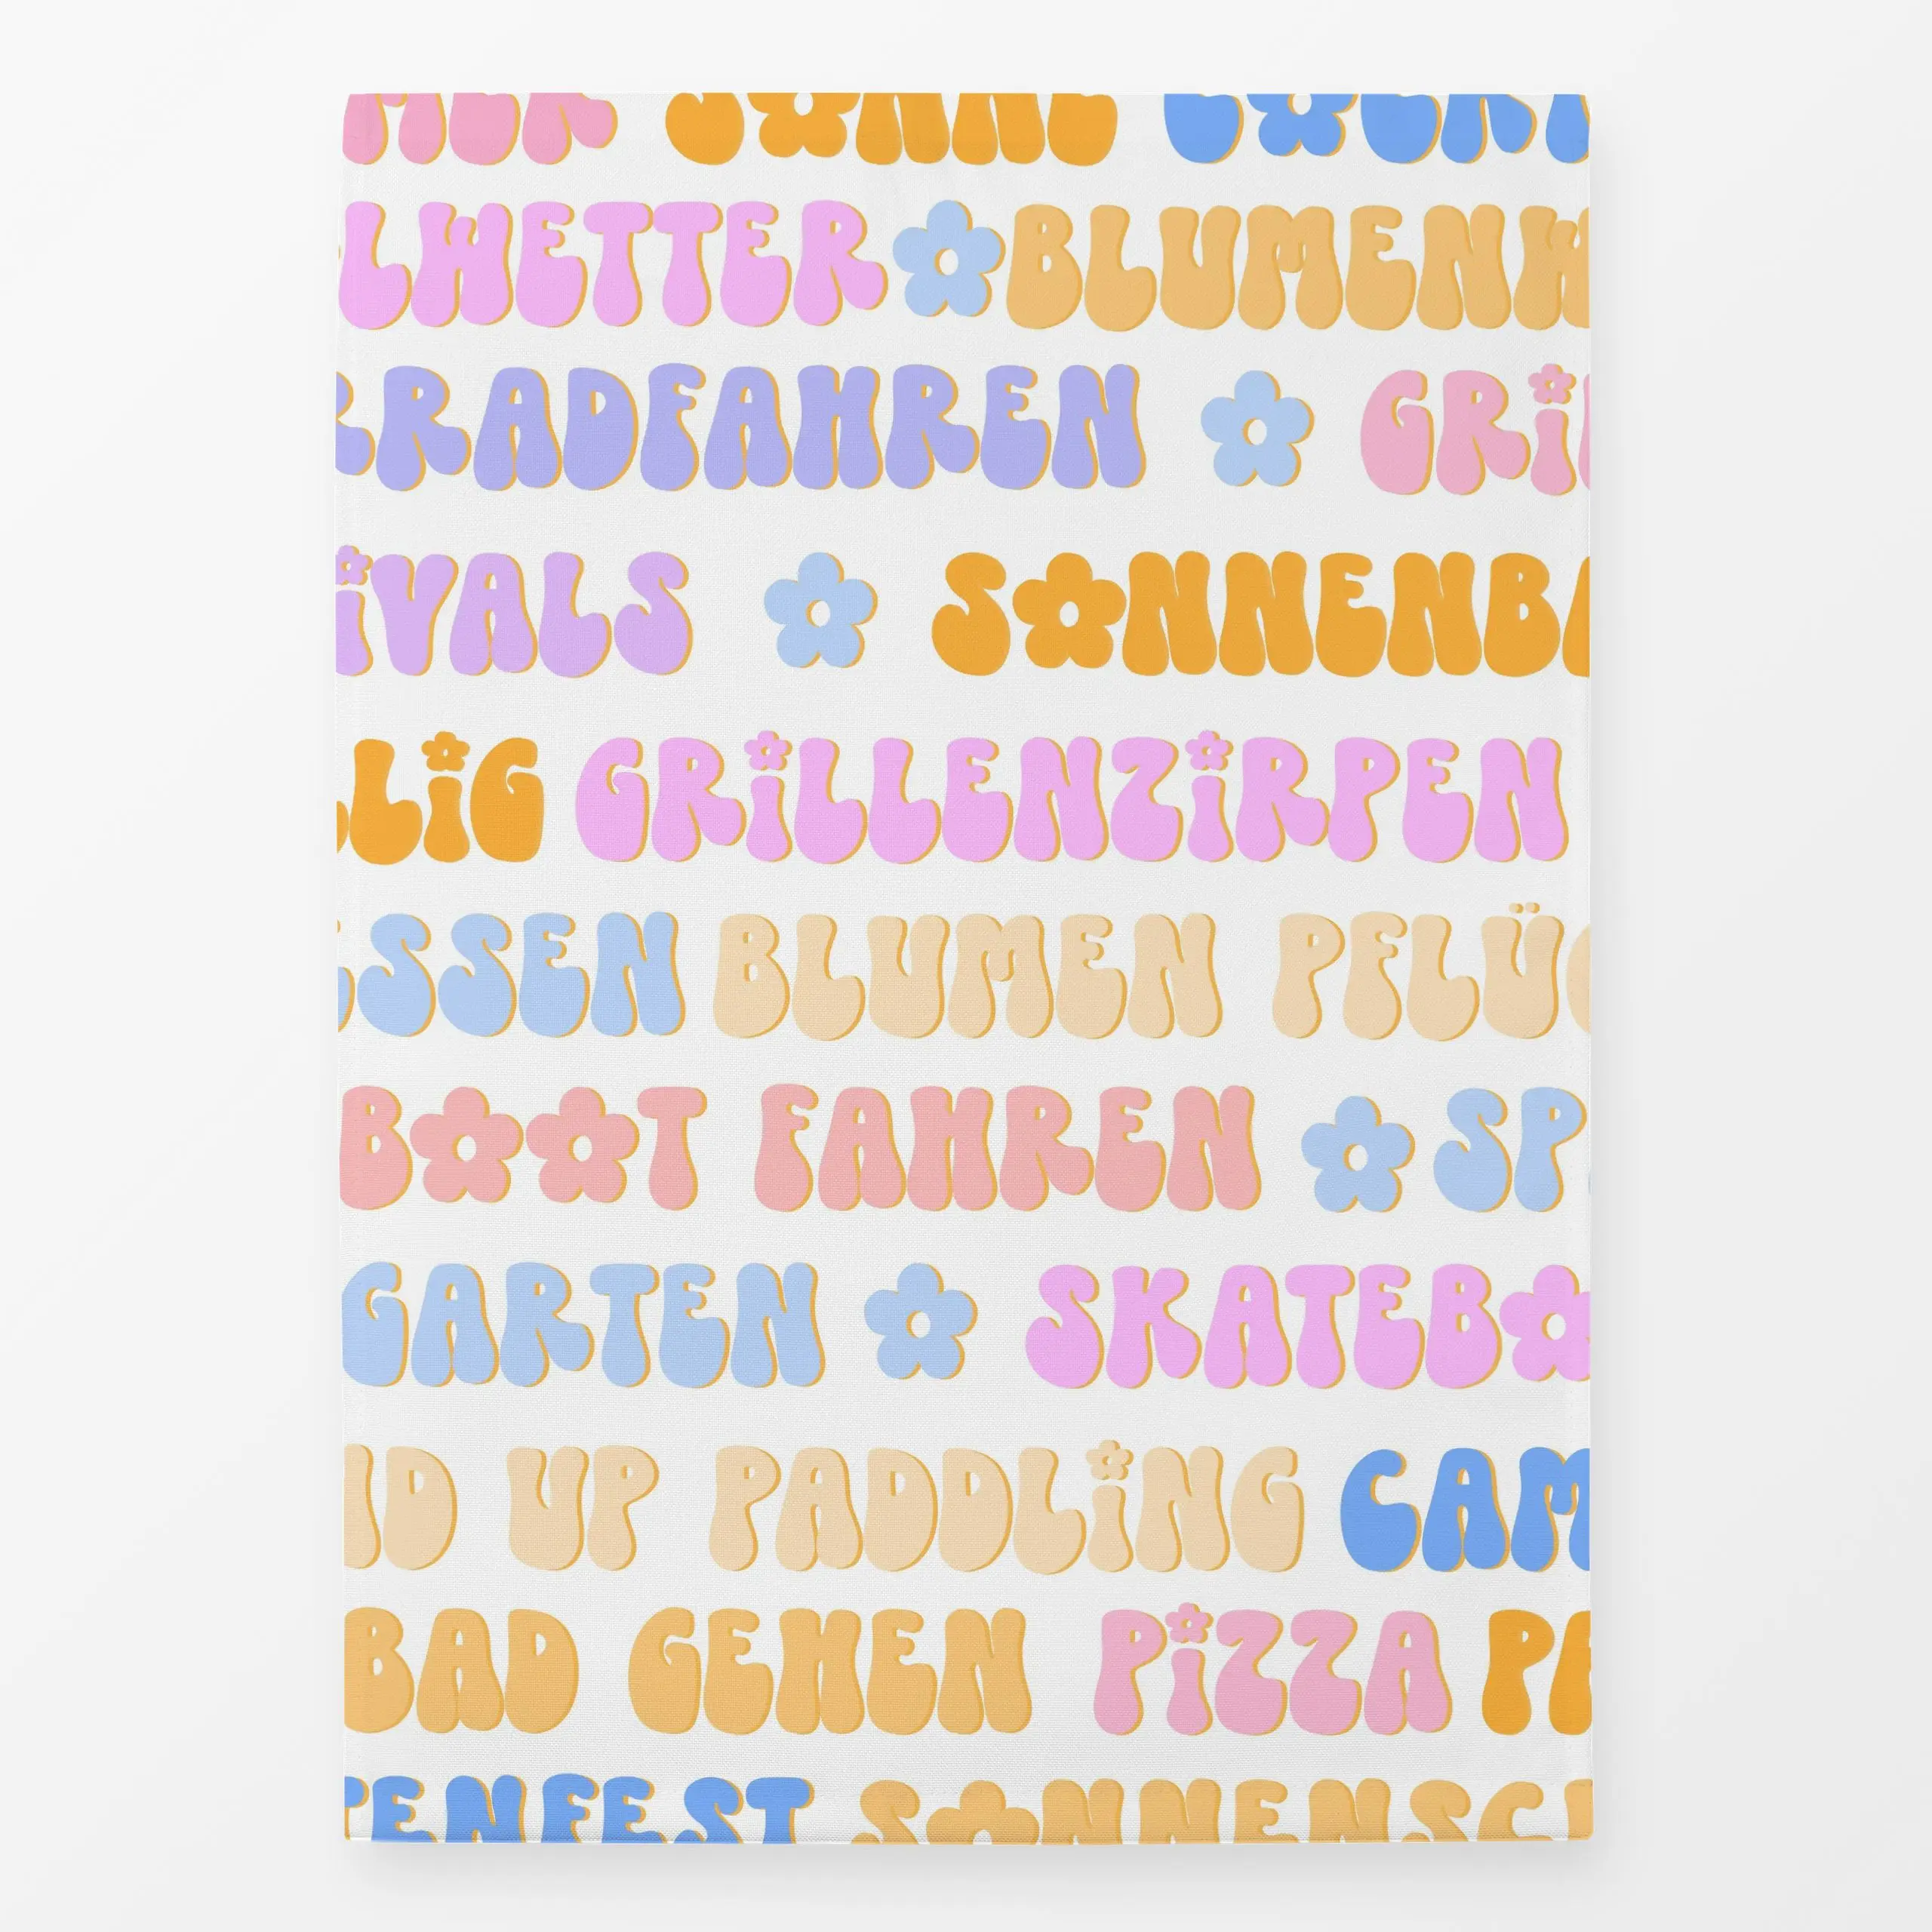 SONNE
LWETTER BLUMENW
RRADFAHREN GRIL
IVALS SONNENBA
LIG GRILLENZIRPEN
SSEN BLUMEN PFLÜ
BOOT FAHREN SP
GARTEN SKATEBO
ND UP PADDLING CAM
BAD GEHEN PIZZA PA
TENFEST SONNENSCH